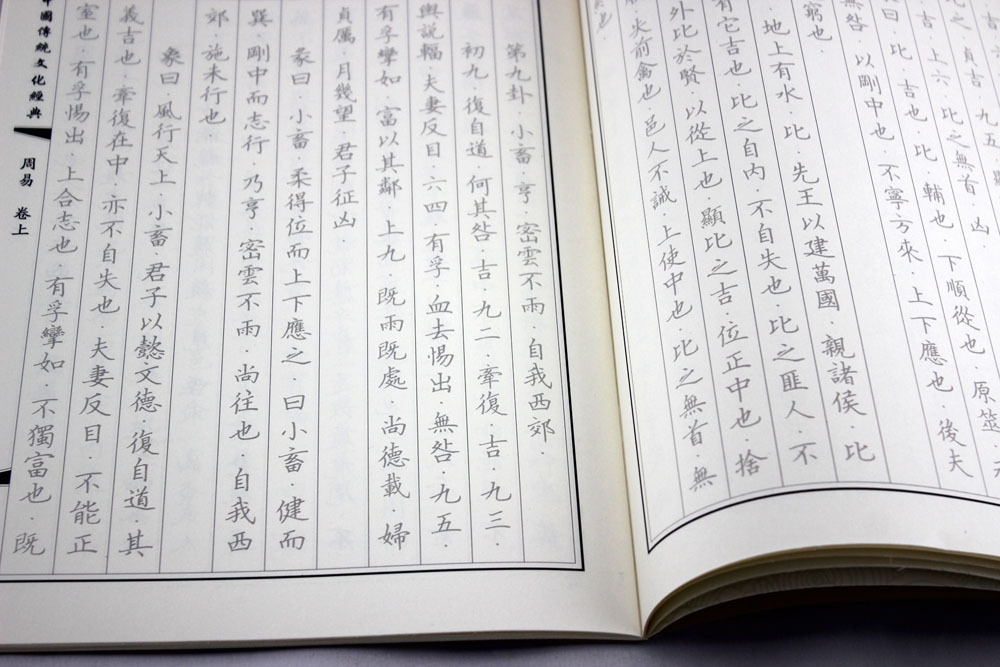 之·貞吉·九五·顯
吉·上六·比之無首·凶
曰·比·吉也·比·輔也·下順從也·原筮·元
無咎·以剛中也·不寧方來·上下應也·後夫
窮也
地上有水·比·先王以建萬國·親諸侯·比
有它吉也·比之自內·不自失也·比之匪人·不
外比於賢·以從上也·顯比之吉·位正中也·捨
失前禽也·邑人不誡·上使中也·比之無首·無
也
第九卦·小畜·亨·密雲不雨·自我西郊·
初九·復自道·何其咎·吉·九二·牽復·吉·九三·
輿說輻·夫妻反目·六四·有孚·血去惕出·無咎·九五·
有孚攣如·富以其鄰·上九·既雨既處·尚德載·婦
貞厲·月幾望·君子征凶·
彖曰·小畜·柔得位而上下應之·曰小畜·健而
巽·剛中而志行·乃亨·密雲不雨·尚往也·自我西
郊·施未行也·
象曰·風行天上·小畜·君子以懿文德·復自道·其
義吉也·牽復在中·亦不自失也·夫妻反目·不能正
室也·有孚惕出·上合志也·有孚攣如·不獨富也·既
中國傳統文化經典
周易 卷上